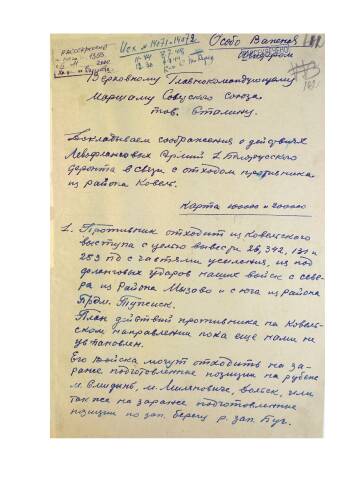 Исх № 14071-14072
Особо Важная
РАССЕКРЕЧЕНО
Шифром
Верховному Главнокомандующему
Маршалу Советского Союза
тов. Сталину.
Докладываем соображения о действиях
Левофланговых Армий 1 Белорусского
фронта в связи с отходом противника
из района Ковель.
Карта 100000 и 200000
1. Противник отходит из Ковельского
выступа с целью вывести 26, 342, 131 и
253 пд с частями усиления, из под
фланговых ударов наших войск с севе
ра из района Мызово и с юга из района
Турийск.
План действий противника на Ковель-
ском направлении пока еще нами не
установлен.
Его войска могут отходить на за-
ранее подготовленные позиции на рубеже
м. Миляновиче, или
так же на заранее подготовленные
позиции по зап. берегу р. зап. Буг.